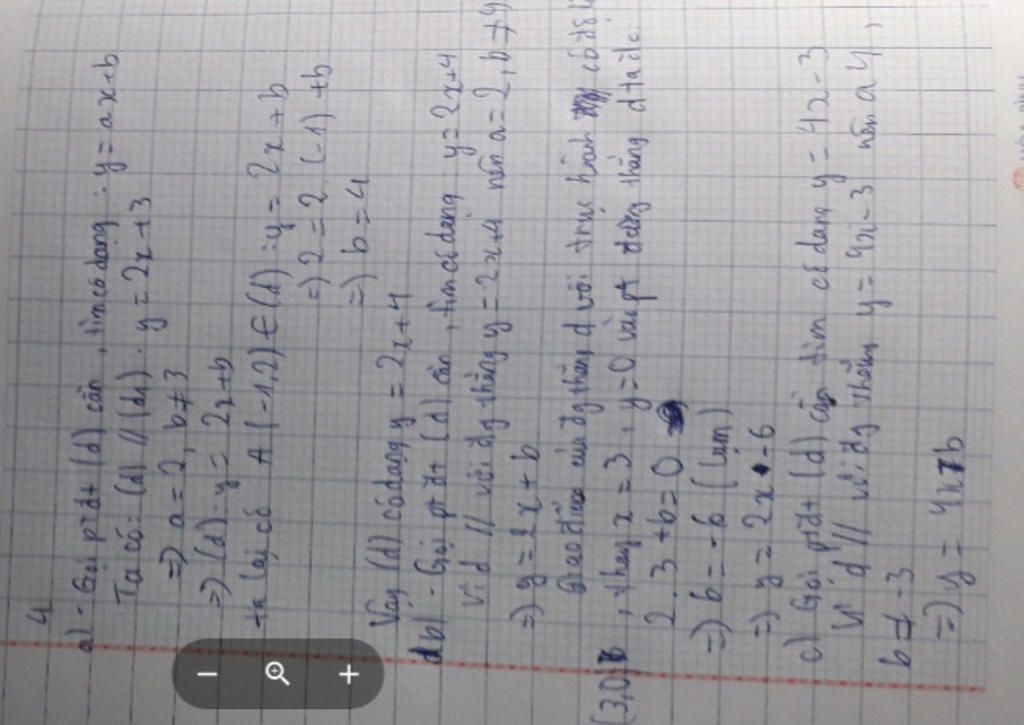 4
a) - Gọi ptđt (d) cần tìm có dạng: y = ax+b
Ta có: (d) // (d1): y = 2x+3
=) a = 2, b ≠ 3
=) (d): y = 2x+b
ta lại có A (-1,2) ∈ (d): y = 2x+b
=) 2 = 2 (-1) + b
=) b = 4
Vậy (d) có dạng y = 2x+4
b) - Gọi ptđt (d) cần tìm có dạng: y = 2x+4
Vì d // với đg thẳng y = 2x+4 nên a = 2, b ≠ 4
=) y = 2x + b
Giao điểm của đg thẳng d với trục hoành có
(3,0) , thay x = 3, y = 0 vào pt đường thẳng d ta đc
2.3 + b = 0
=) b = -6
=) y = 2x - 6
c) Gọi ptđt (d) cần tìm có dạng y = 4x - 3
Vì d // với đg thẳng y = 4x - 3 nên a 4,
b ≠ - 3
=) y = 4x+b